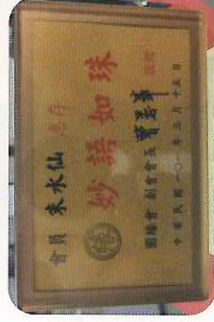 會員 末水仙 惠存
妙語如珠
圓緣會 創會會長 敬贈
中華民國一〇一年三月十五日